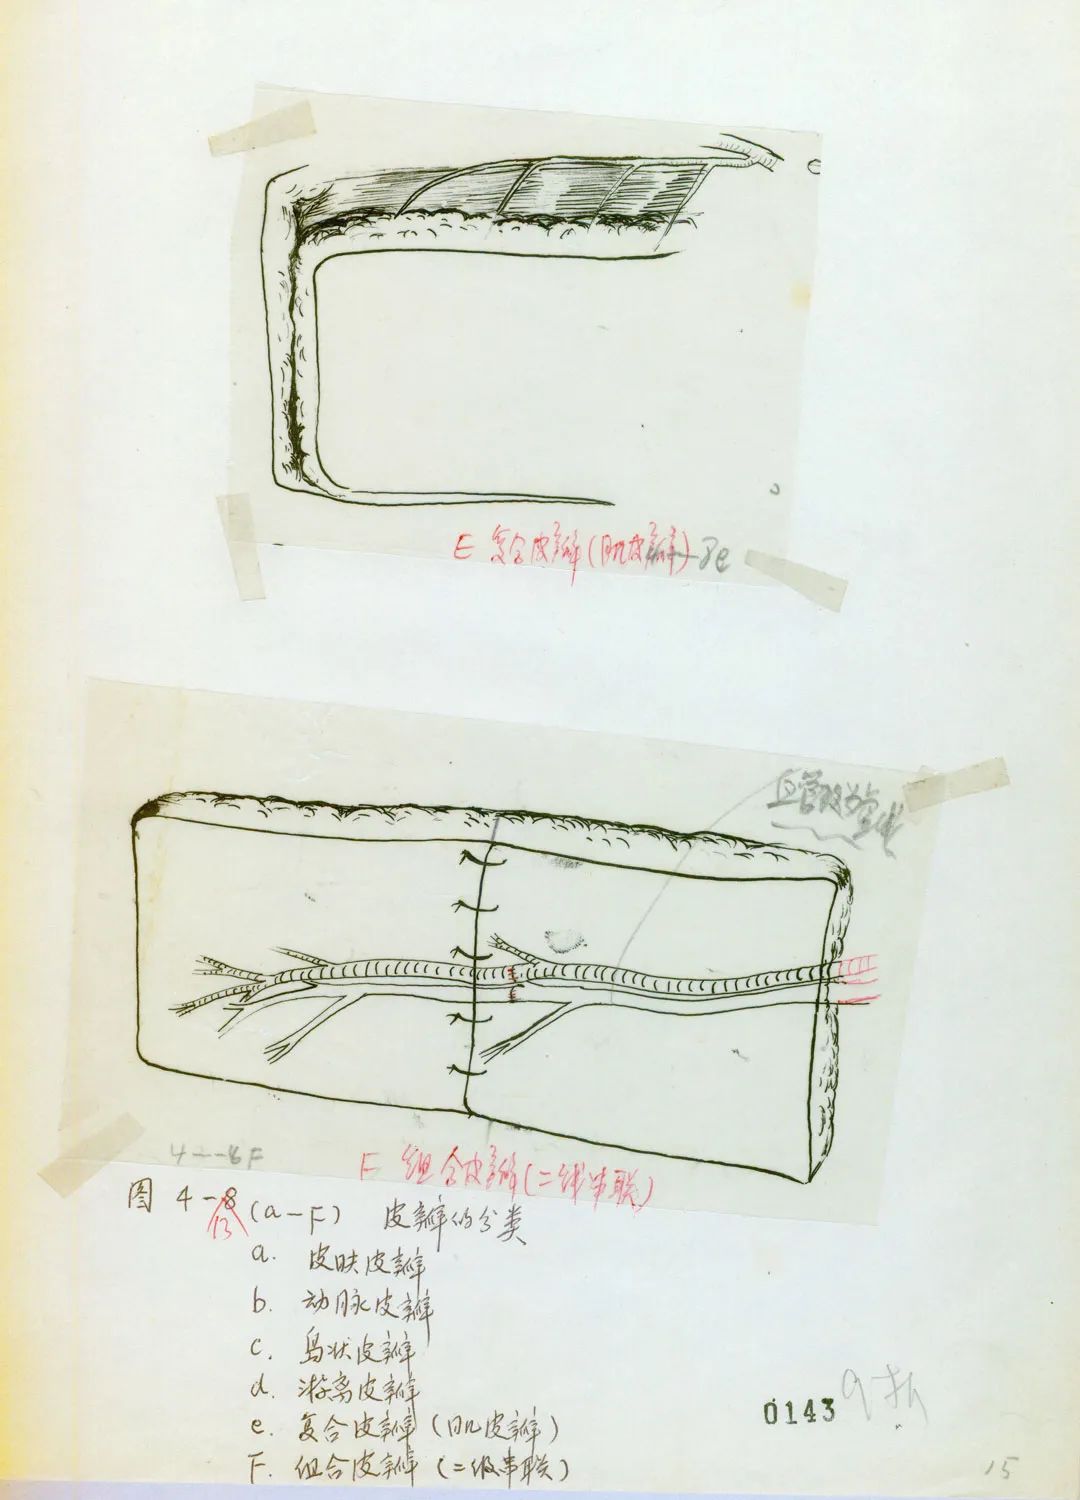 e
E 复合皮瓣(肌皮瓣)
8e
4-8F
F 组合皮瓣(二级串联)
图 4-8 (a-F) 皮瓣的分类
13
a. 皮肤皮瓣
b. 动脉皮瓣
c. 岛状皮瓣
d. 游离皮瓣
e. 复合皮瓣 (肌皮瓣)
F. 组合皮瓣 (二级串联)
0143
15